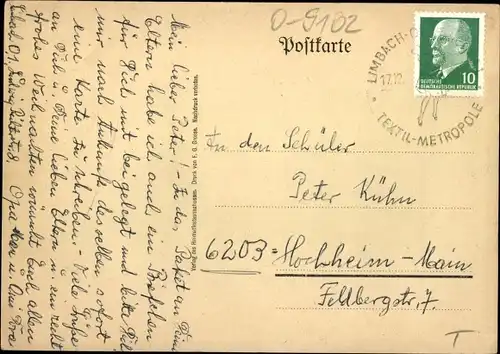 O-9102
Postkarte
LIMBACH-O
17.12.
TEXTIL-METROPOLE
10
DEUTSCHE
DEMOKRATISCHE REPUBLIK
An den Schüler
Peter Kühn
6203 = Hochheim-Main
Feldbergstr. 7.
T
Mein lieber Peter! - In das Paket an Deine
Eltern habe ich auch ein Briefchen
für Dich mit bei gelegt und bitte Dich
mir nach Ankunft desselben sofort
eine Karte zu schreiben. - Viele Grüße
an Dich u. Deine lieben Eltern u. ein recht
frohes Weihnachten wünscht Euch allen
Opa u. Omi